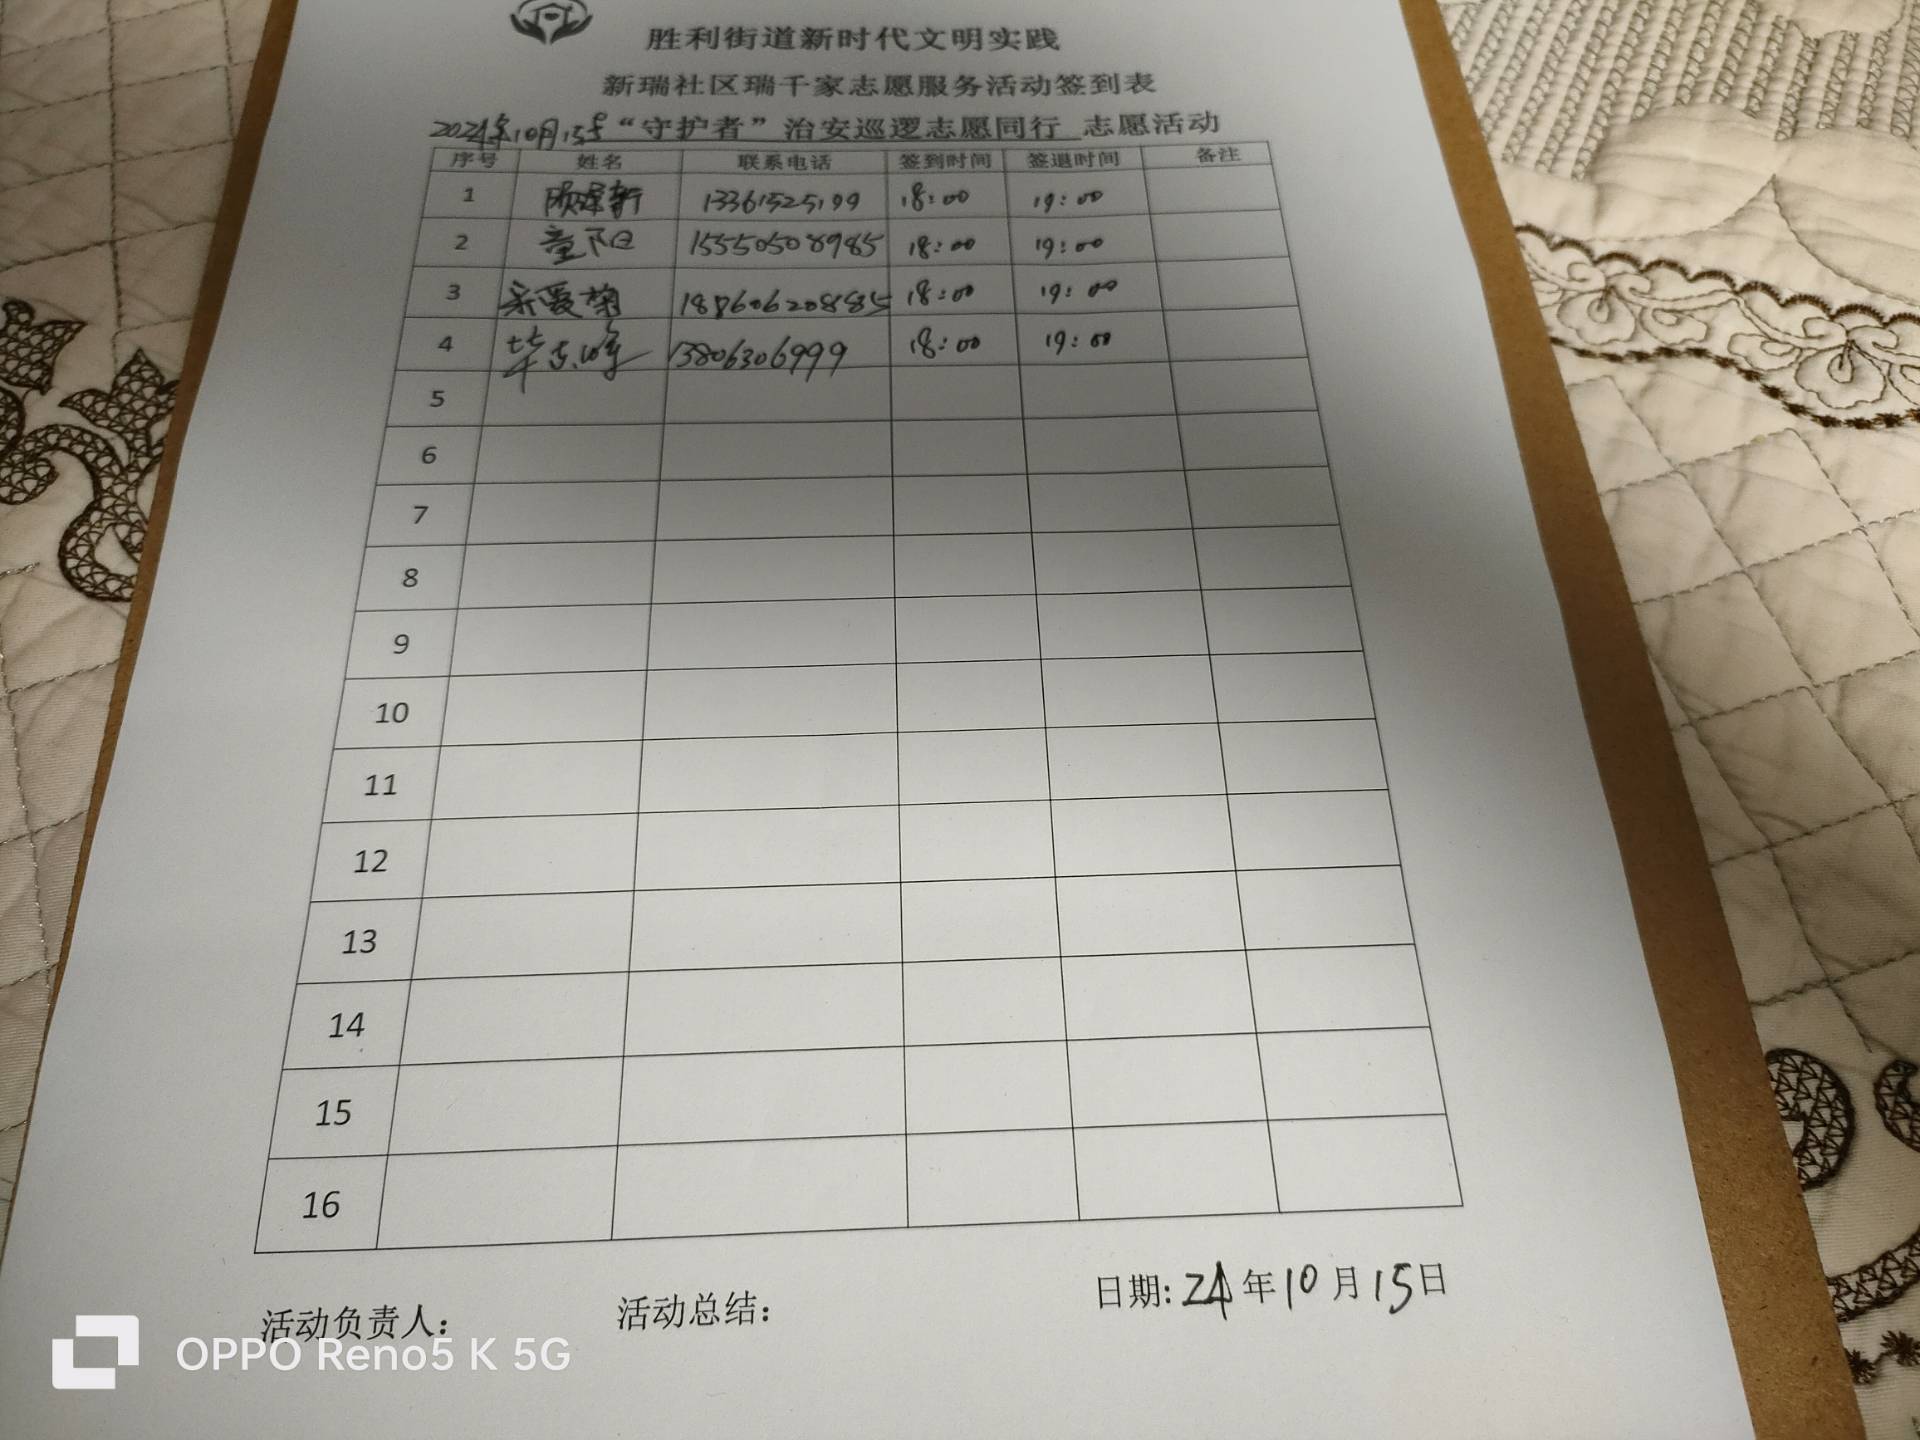 胜利街道新时代文明实践
新瑞社区瑞千家志愿服务活动签到表
2024年10月15号“守护者”治安巡逻志愿同行 志愿活动
序号 姓名 联系电话 签到时间 签退时间 备注
1 13361525199 18:00 19:00
2 童阳 15550508985 18:00 19:00
3 爱菊 18 18:00 19:00
4 毕志峰 13806306999 18:00 19:00
5
6
7
8
9
10
11
12
13
14
15
16
活动负责人： 活动总结： 日期: 24年10月15日
OPPO Reno5 K 5G